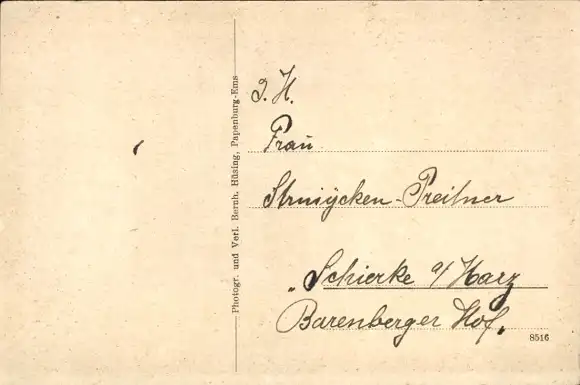 Photogr. und Verl. Bernh. Hüsing, Papenburg-Ems
I. H.
Frau
Struÿcken-Preitner
„Schierke a/Harz
Barenberger Hof.
8516